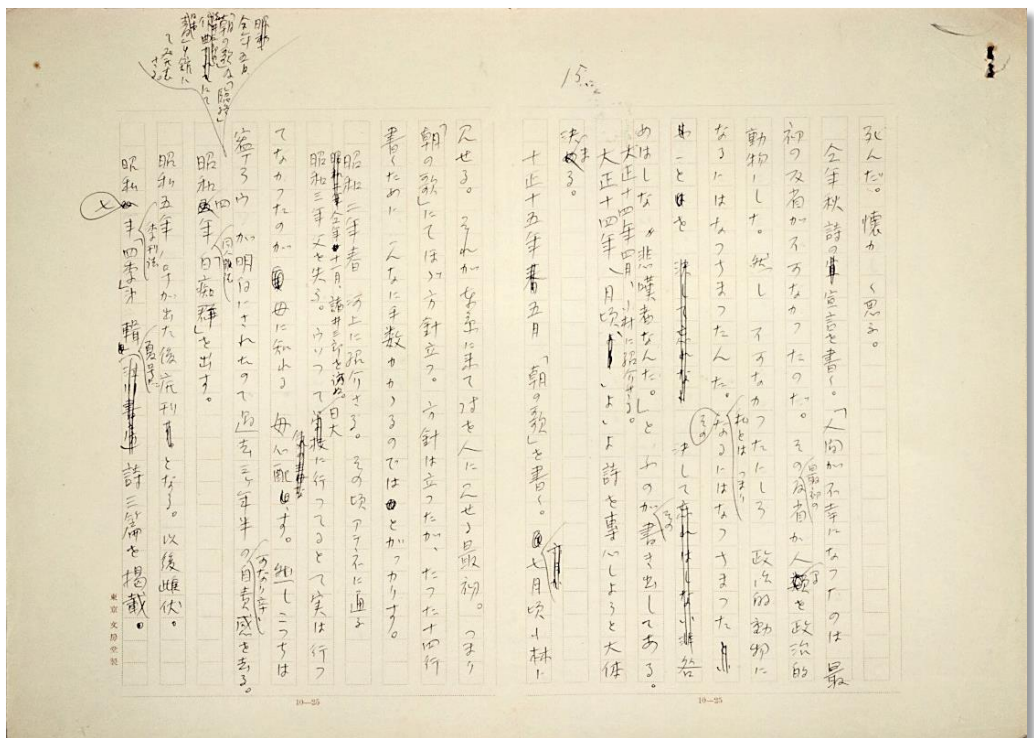 死んだ。懐かしく思ふ。
仝年秋詩の宣言を書く。「人間が不幸になつたのは、最
初の反省が不可なかつたのだ。その最初の反省が人間を政治的
動物にした。然し、不可なかつたにしろ、政治的動物に
なるにはなつちまつたんだ。私とは、つまり、そのなるにはなつちまつたことを、決して咎めはしない悲嘆者なんだ。」といふのがその書き出しである。
大正十四年四月、小林に紹介さる。
大正十四年八月頃、いよいよ詩を専心しようと大体
決まる。
大正十五年五月、「朝の歌」を書く。七月頃小林に
見せる。それが東京に来て詩を人に見せる最初。つまり
「朝の歌」にてほゞ方針立つ。方針は立つたが、たつた十四行
書くために、こんなに手数がかゝるのではとがつかりす。
昭和二年春、河上に紹介さる。その頃アテネに通ふ。
仝年十一月、諸井三郎を訪ぬ。
昭和三年父を失ふ。ウソついて日大に行つてるとて実は行つ
てなかつたのが母に知れる。母心配す。然しこつちは
寧ろウソが明白にされたので過去三ヶ年半の可なり辛い自責感を去る。
昭和四年同人雑誌「白痴群」を出す。
昭和五年、
仝年五月
「朝の歌」「臨終」
昭和五年、八号が出た後廃刊となる。以後雌伏。
昭和七年季刊誌「四季」第二輯夏号に詩三篇を掲載。
15
10—25
10—25
東京文房堂製